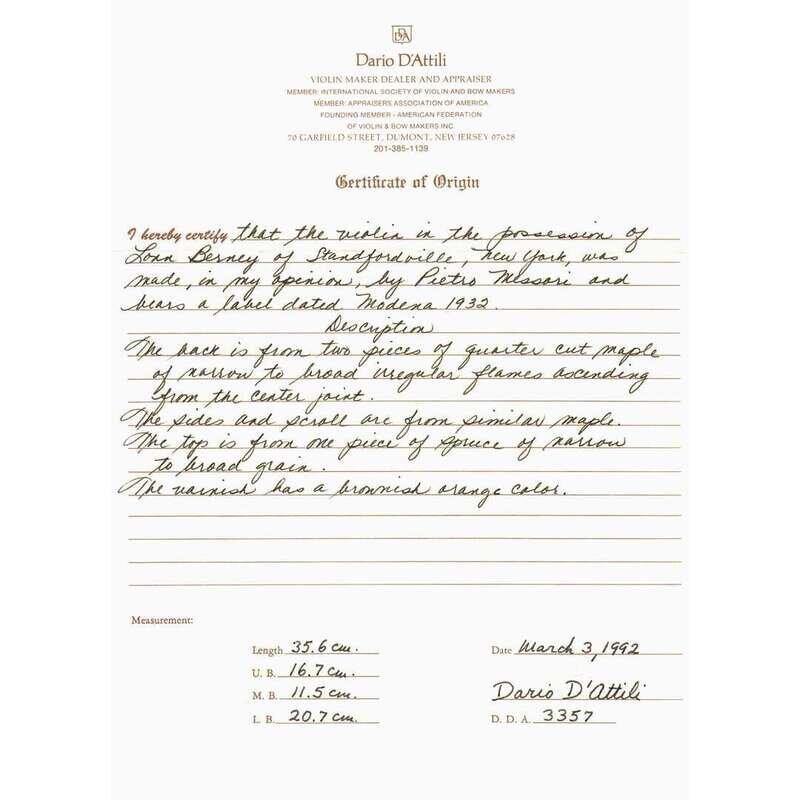 DDA
Dario D'Attili
VIOLIN MAKER DEALER AND APPRAISER
MEMBER: INTERNATIONAL SOCIETY OF VIOLIN AND BOW MAKERS
MEMBER: APPRAISERS ASSOCIATION OF AMERICA
FOUNDING MEMBER - AMERICAN FEDERATION
OF VIOLIN & BOW MAKERS INC.
70 GARFIELD STREET, DUMONT, NEW JERSEY 07628
201-385-1139
Certificate of Origin
I hereby certify that the violin in the possession of
Lonn Berney of Standfordville, New York, was
made, in my opinion, by Pietro Messori and
bears a label dated Modena 1932.
Description
The back is from two pieces of quarter cut maple
of narrow to broad irregular flames ascending
from the center joint.
The sides and scroll are from similar maple.
The top is from one piece of spruce of narrow
to broad grain.
The varnish has a brownish orange color.
Measurement:
Length 35.6 cm. Date March 3, 1992
U. B. 16.7 cm.
M. B. 11.5 cm. Dario D'Attili
L. B. 20.7 cm. D. D. A. 3357